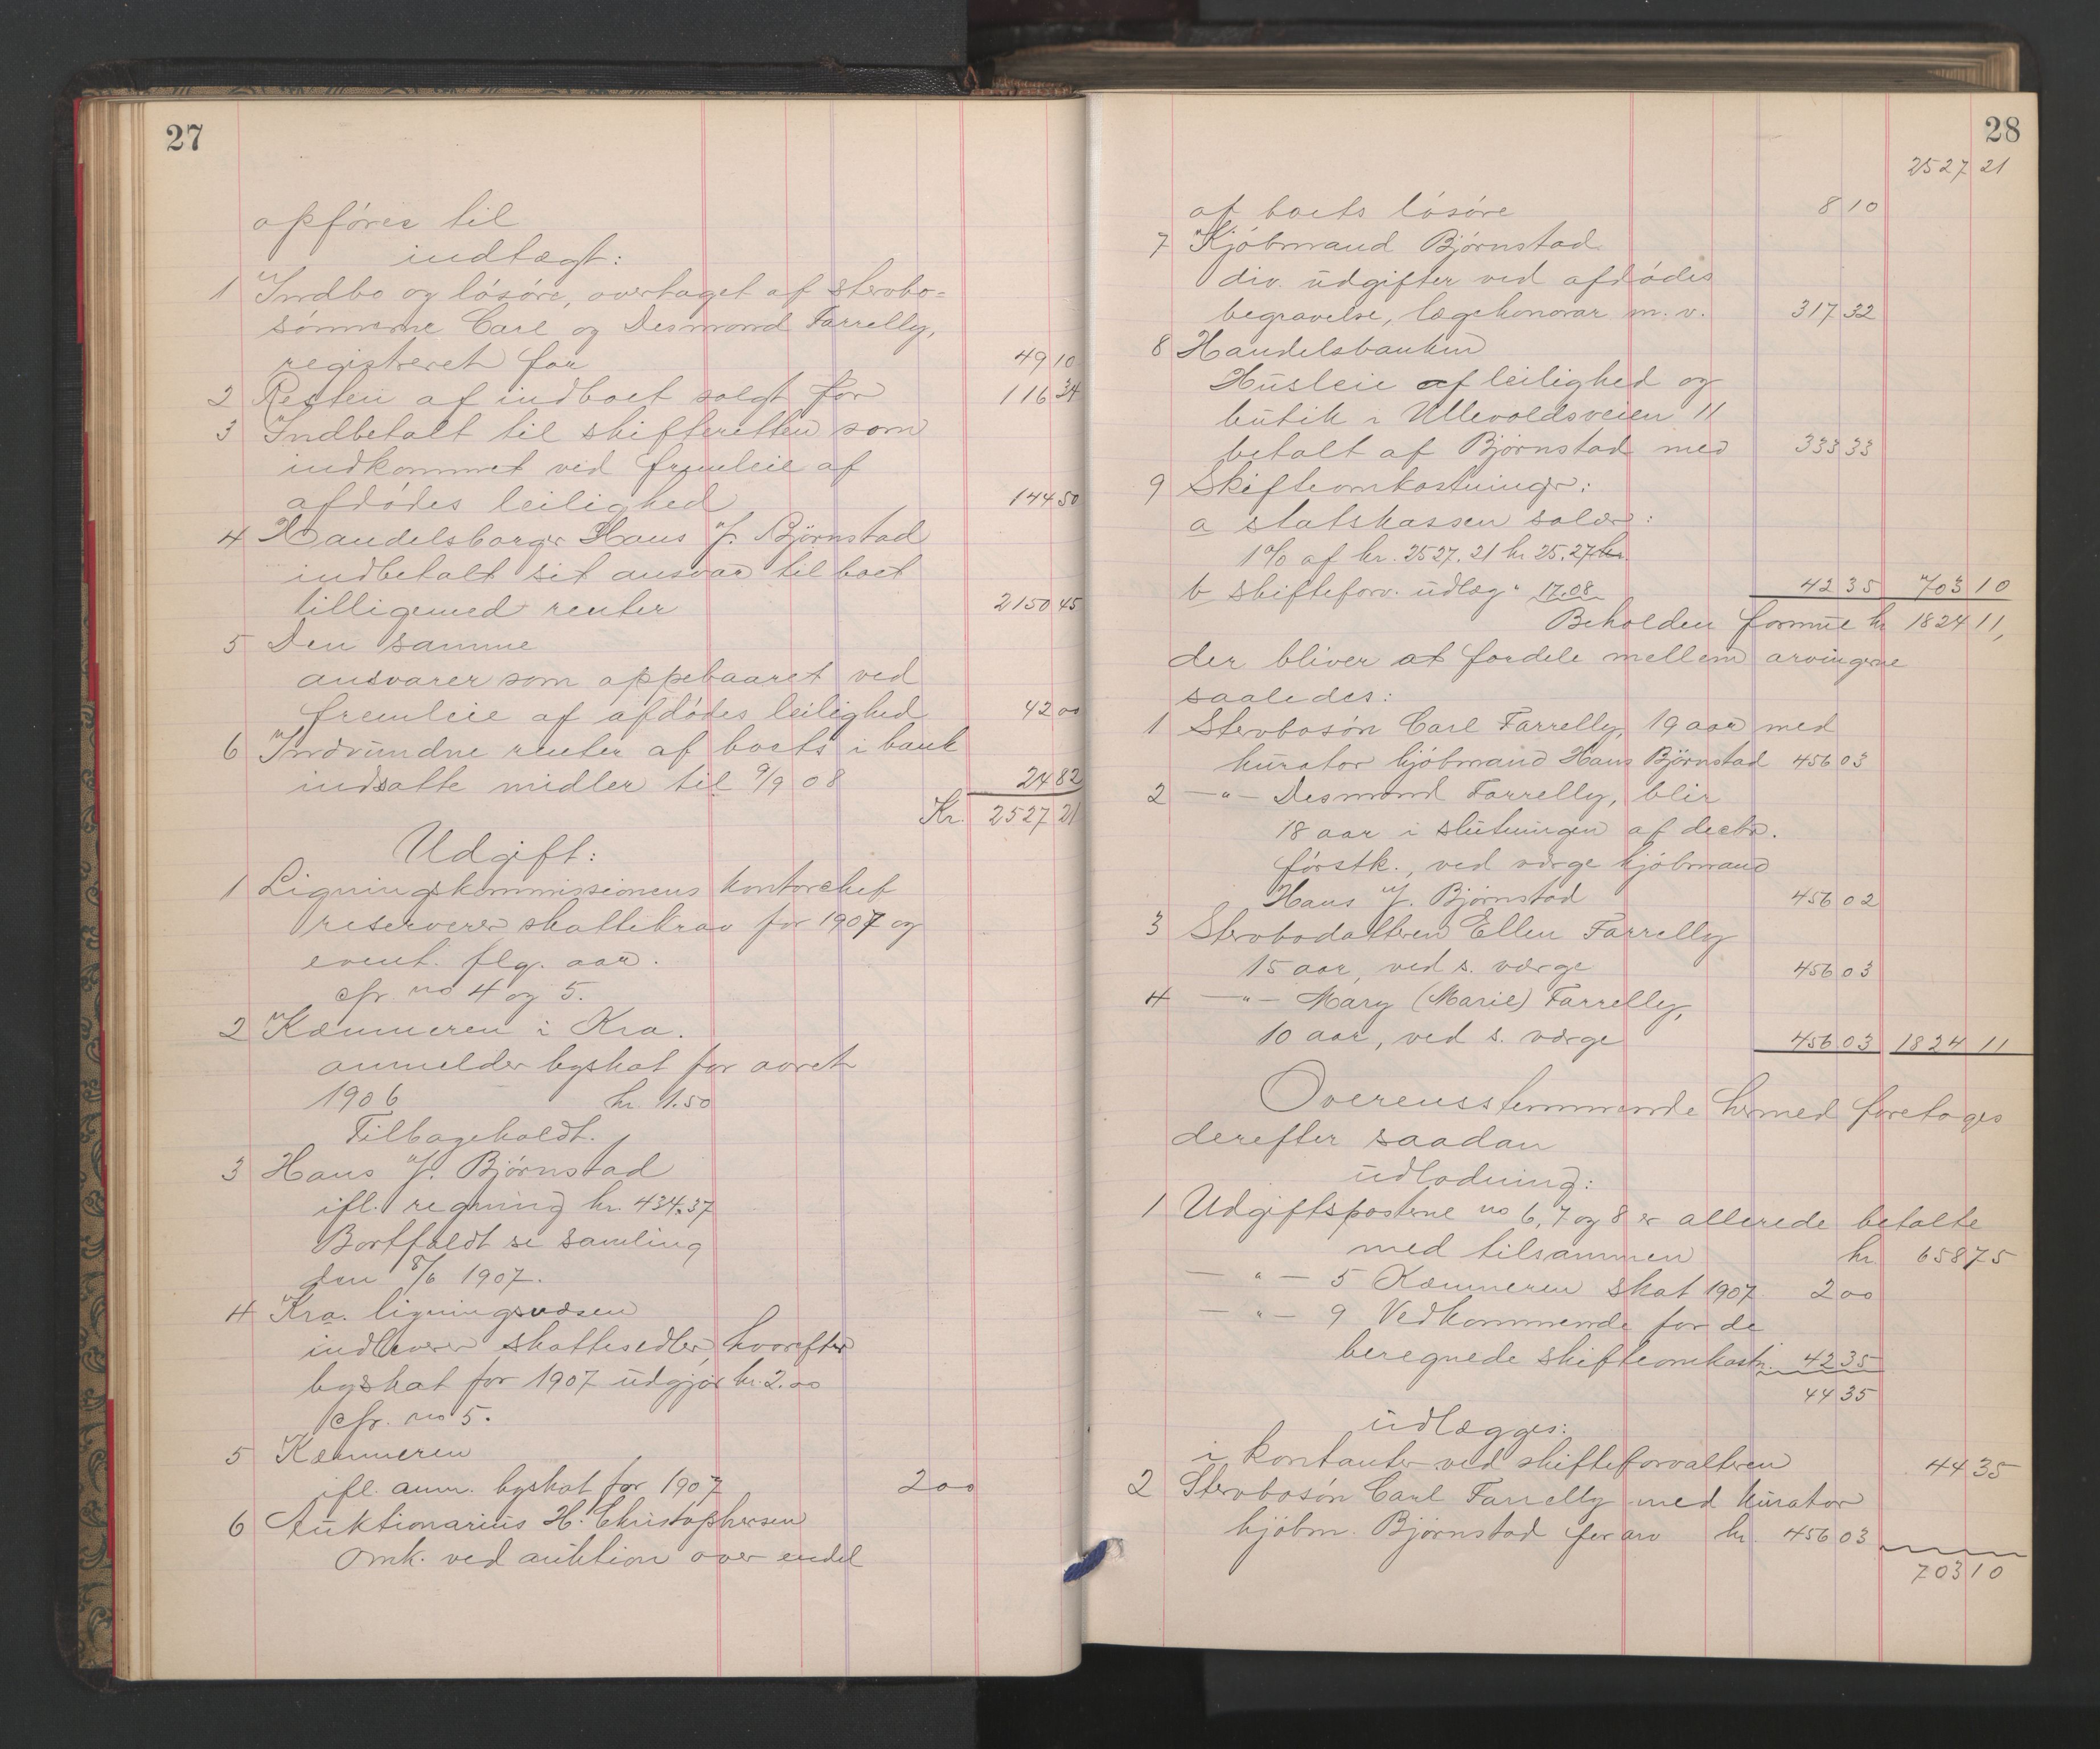 27
opføres til
indtægt:
1 Indbo og løsøre, overtaget af stervbo-
sønnerne Carl og Desmond Farrelly,
registreret for 49 10
2 Resten af indboet solgt for 116 34
3 Indbetalt til skifteretten som
indkommet ved fremleie af
afdødes leilighed 144 50
4 Handelsborger Hans J. Bjørnstad
indbetalt sit ansvar til boet
tilligemed renter 2150 45
5 Den samme
ansvarer som oppebaaret ved
fremleie af afdødes leilighed 42 00
6 Indvundne renter af boets i bank
indsatte midler til 9/9 08 24 82
Kr. 2527 21
Udgift:
1 Ligningskommissionens kontorchef
reserverer skattekrav for 1907 og
event. flg. aar.
cfr. no 4 og 5.
2 Kæmneren i Kra.
anmelder byskat for aaret
1906 kr. 11.50
Tilbageholdt.
3 Hans J. Bjørnstad
ifl. regning kr. 434.37
Bortfaldt se samling
den 8/6 1907.
4 Kra. ligningsvæsen
indleverer skattesedler, hvorefter
byskat for 1907 udgjør kr. 2.00
cfr. no 5.
5 Kæmneren
ifl. anm. byskat for 1907 2 00
6 Auktionarius H. Christophersen
omk. ved auktion over endel
28
2527 21
af boets løsøre 8 10
7 Kjøbmand Bjørnstad
div. udgifter ved afdødes
begravelse, lægehonorar m. v. 317 32
8 Handelsbanken
Husleie af leilighed og
butik i Ullevoldsveien 11
betalt af Bjørnstad med 333 33
9 Skifteomkostninger:
a statskassen salær:
1% af kr. 2527.21 kr. 25.27 kr.
b skifteforv. udlæg " 17.08 42 35 703 10
Beholden formue kr 1824 11,
der bliver at fordele mellem arvingerne
saaledes:
1 Stervbosøn Carl Farrelly, 19 aar med
kurator kjøbmand Hans Bjørnstad 456 03
2 —"— Desmond Farrelly, blir
18 aar i slutningen af decbr.
førstk., ved værge kjøbmand
Hans J. Bjørnstad 456 02
3 Stervbodatteren Ellen Farrelly
15 aar, ved s. værge 456 03
4 —"— Mary (Marie) Farrelly,
10 aar, ved s. værge 456 03 1824 11
Overensstemmende hermed foretages
derefter saadan
udlodning:
1 Udgiftsposterne no 6, 7 og 8 er allerede betalte
med tilsammen kr 658 75
— " — 5 Kæmneren skat 1907 2 00
— " — 9 Vedkommende for de
beregnede skifteomkostn. 42 35
44 35
udlægges:
i kontanter ved skifteforvalteren 44 35
2 Stervbosøn Carl Farrelly med kurator
kjøbm. Bjørnstad for arv kr. 456 03
703 10